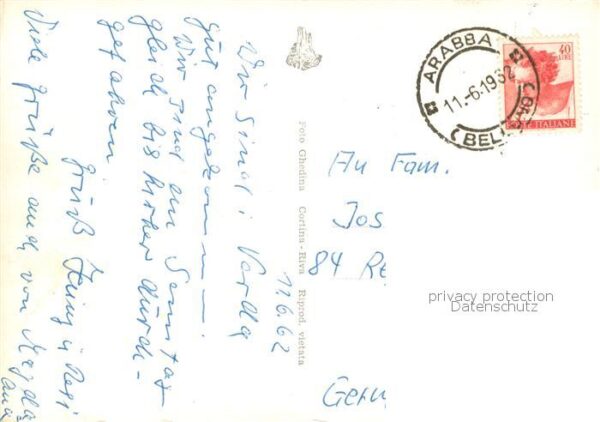 11.6.62
Wir sind i Varda
gut angekommen.
Wir sind am Samstag
gleich bis hirher durch-
gefahren.
Gruß
Viele Grüße auch von Magda
Foto Ghedina Cortina - Riva Riprod. vietata
ARABBA
11.-6.1962
(BEL
40
LIRE
POSTE ITALIANE
An Fam.
Jos
84 Re
Germ
privacy protection
Datenschutz